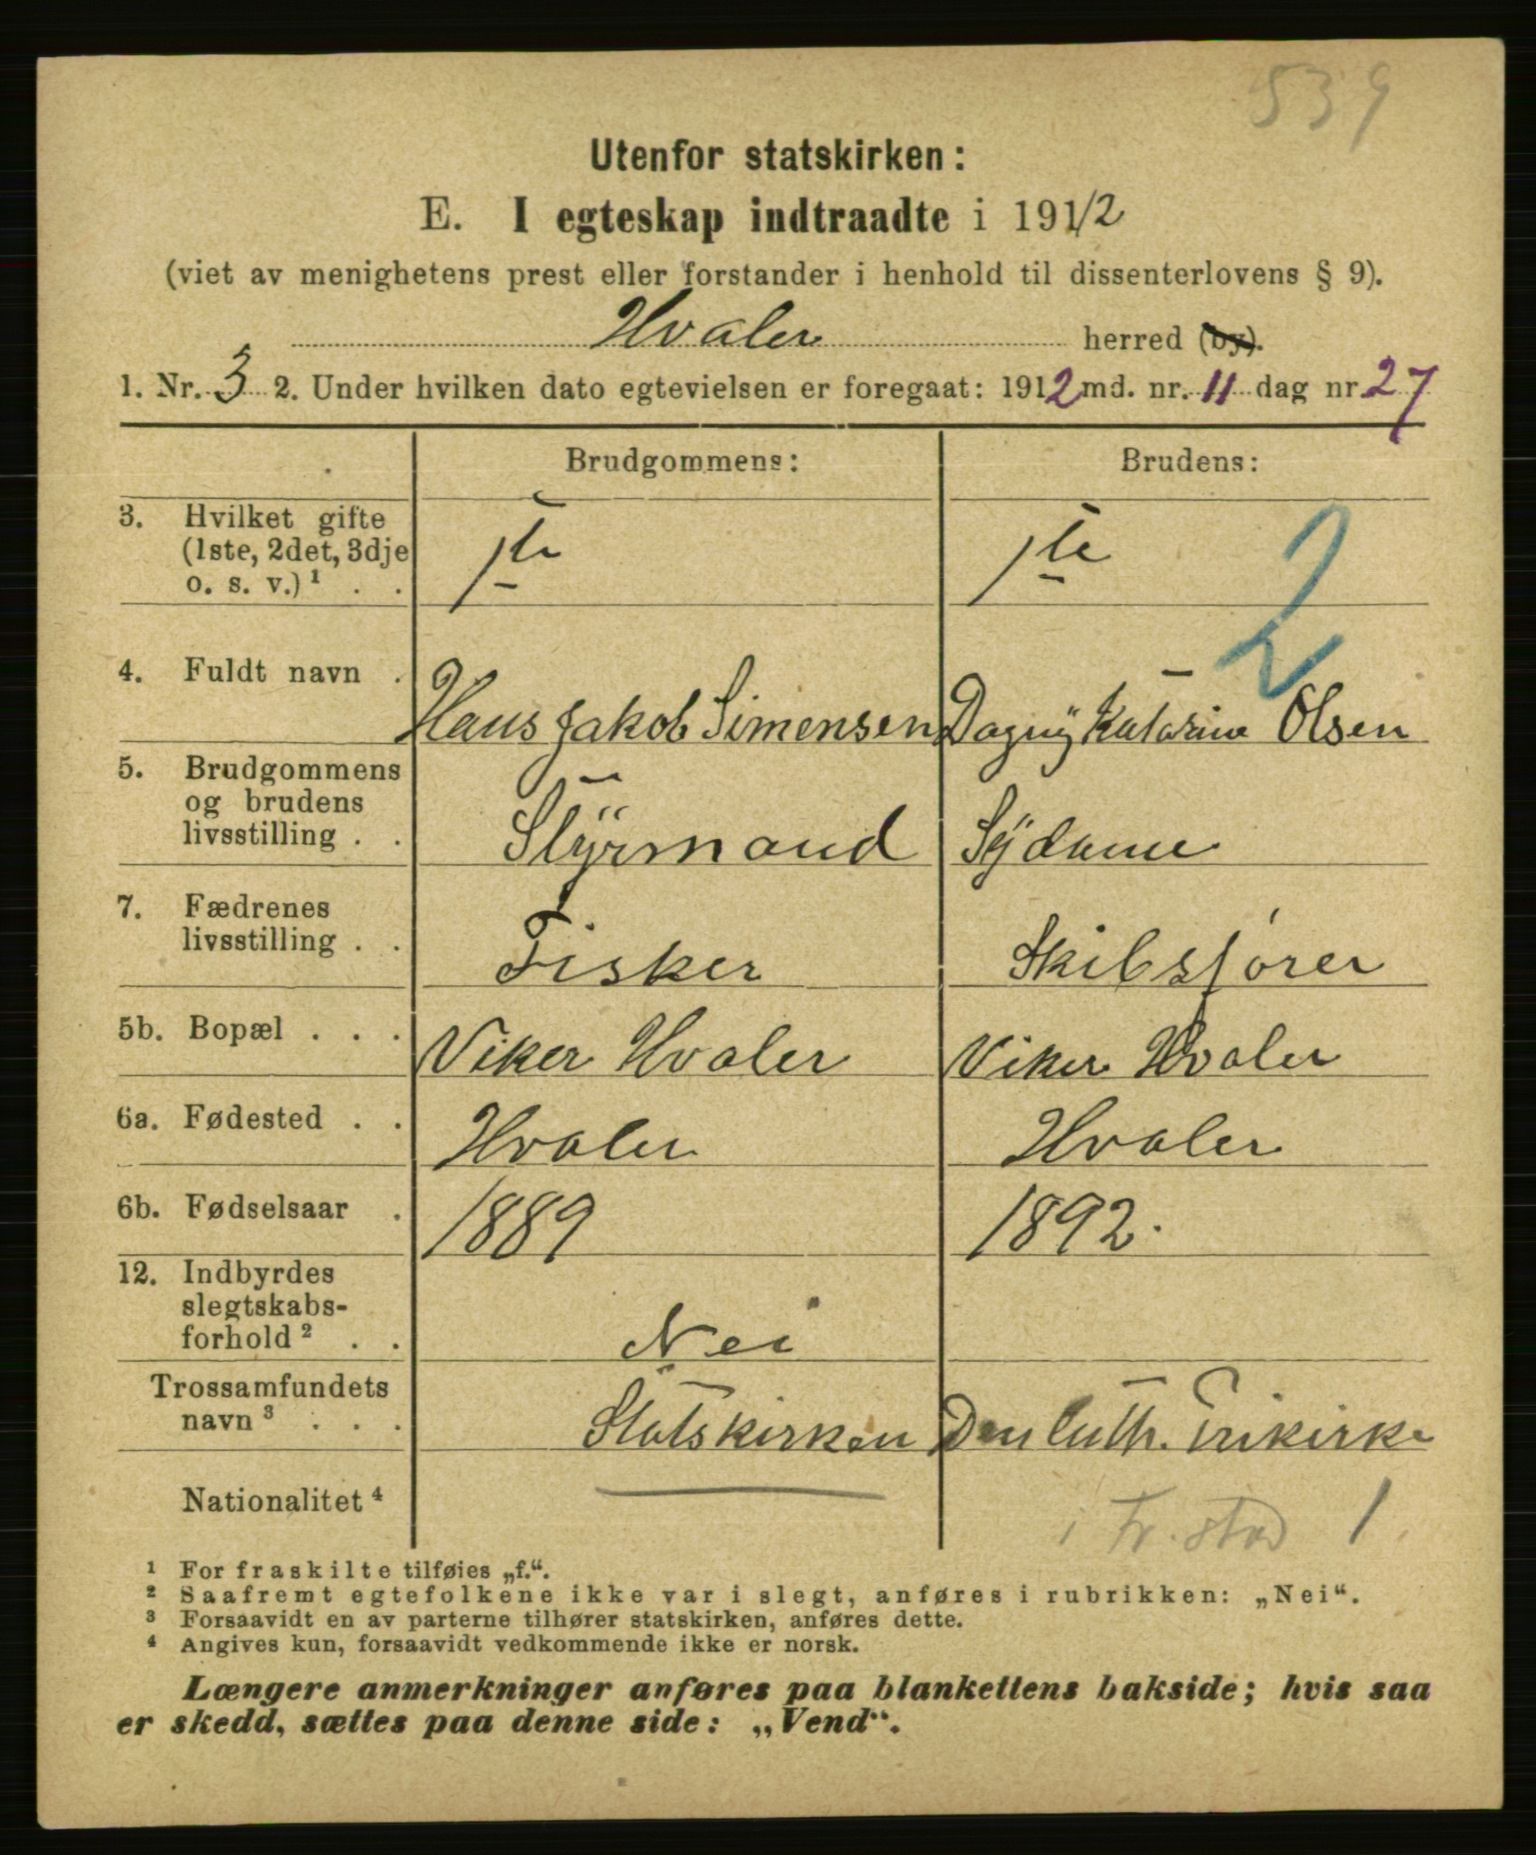 539
Utenfor statskirken:
E. I egteskap indtraadte i 1912
(viet av menighetens prest eller forstander i henhold til dissenterlovens § 9).
Hvaler herred (by).
1. Nr. 3 2. Under hvilken dato egtevielsen er foregaat: 1912 md. nr. 11 dag nr. 27
Brudgommens: Brudens:
3. Hvilket gifte
(1ste, 2det, 3dje
o. s. v.)¹ . . 1ste 1ste
2
4. Fuldt navn . Hans Jakob Simensen Dagny Katarine Olsen
5. Brudgommens
og brudens
livsstilling . . Styrmand Sydame
7. Fædrenes
livsstilling . . Fisker Skibsfører
5b. Bopæl . . . Viker Hvaler Viker Hvaler
6a. Fødested . . Hvaler Hvaler
6b. Fødselsaar . 1889 1892.
12. Indbyrdes
slegtskabs-
forhold² . . Nei
Trossamfundets
navn³ . . . Statskirken Den luth. Frikirke
Nationalitet⁴ i Fr.stad 1
¹ For fraskilte tilføies „f.“.
² Saafremt egtefolkene ikke var i slegt, anføres i rubrikken: „Nei“.
³ Forsaavidt en av parterne tilhører statskirken, anføres dette.
⁴ Angives kun, forsaavidt vedkommende ikke er norsk.
Længere anmerkninger anføres paa blankettens bakside; hvis saa
er skedd, sættes paa denne side: „Vend“.